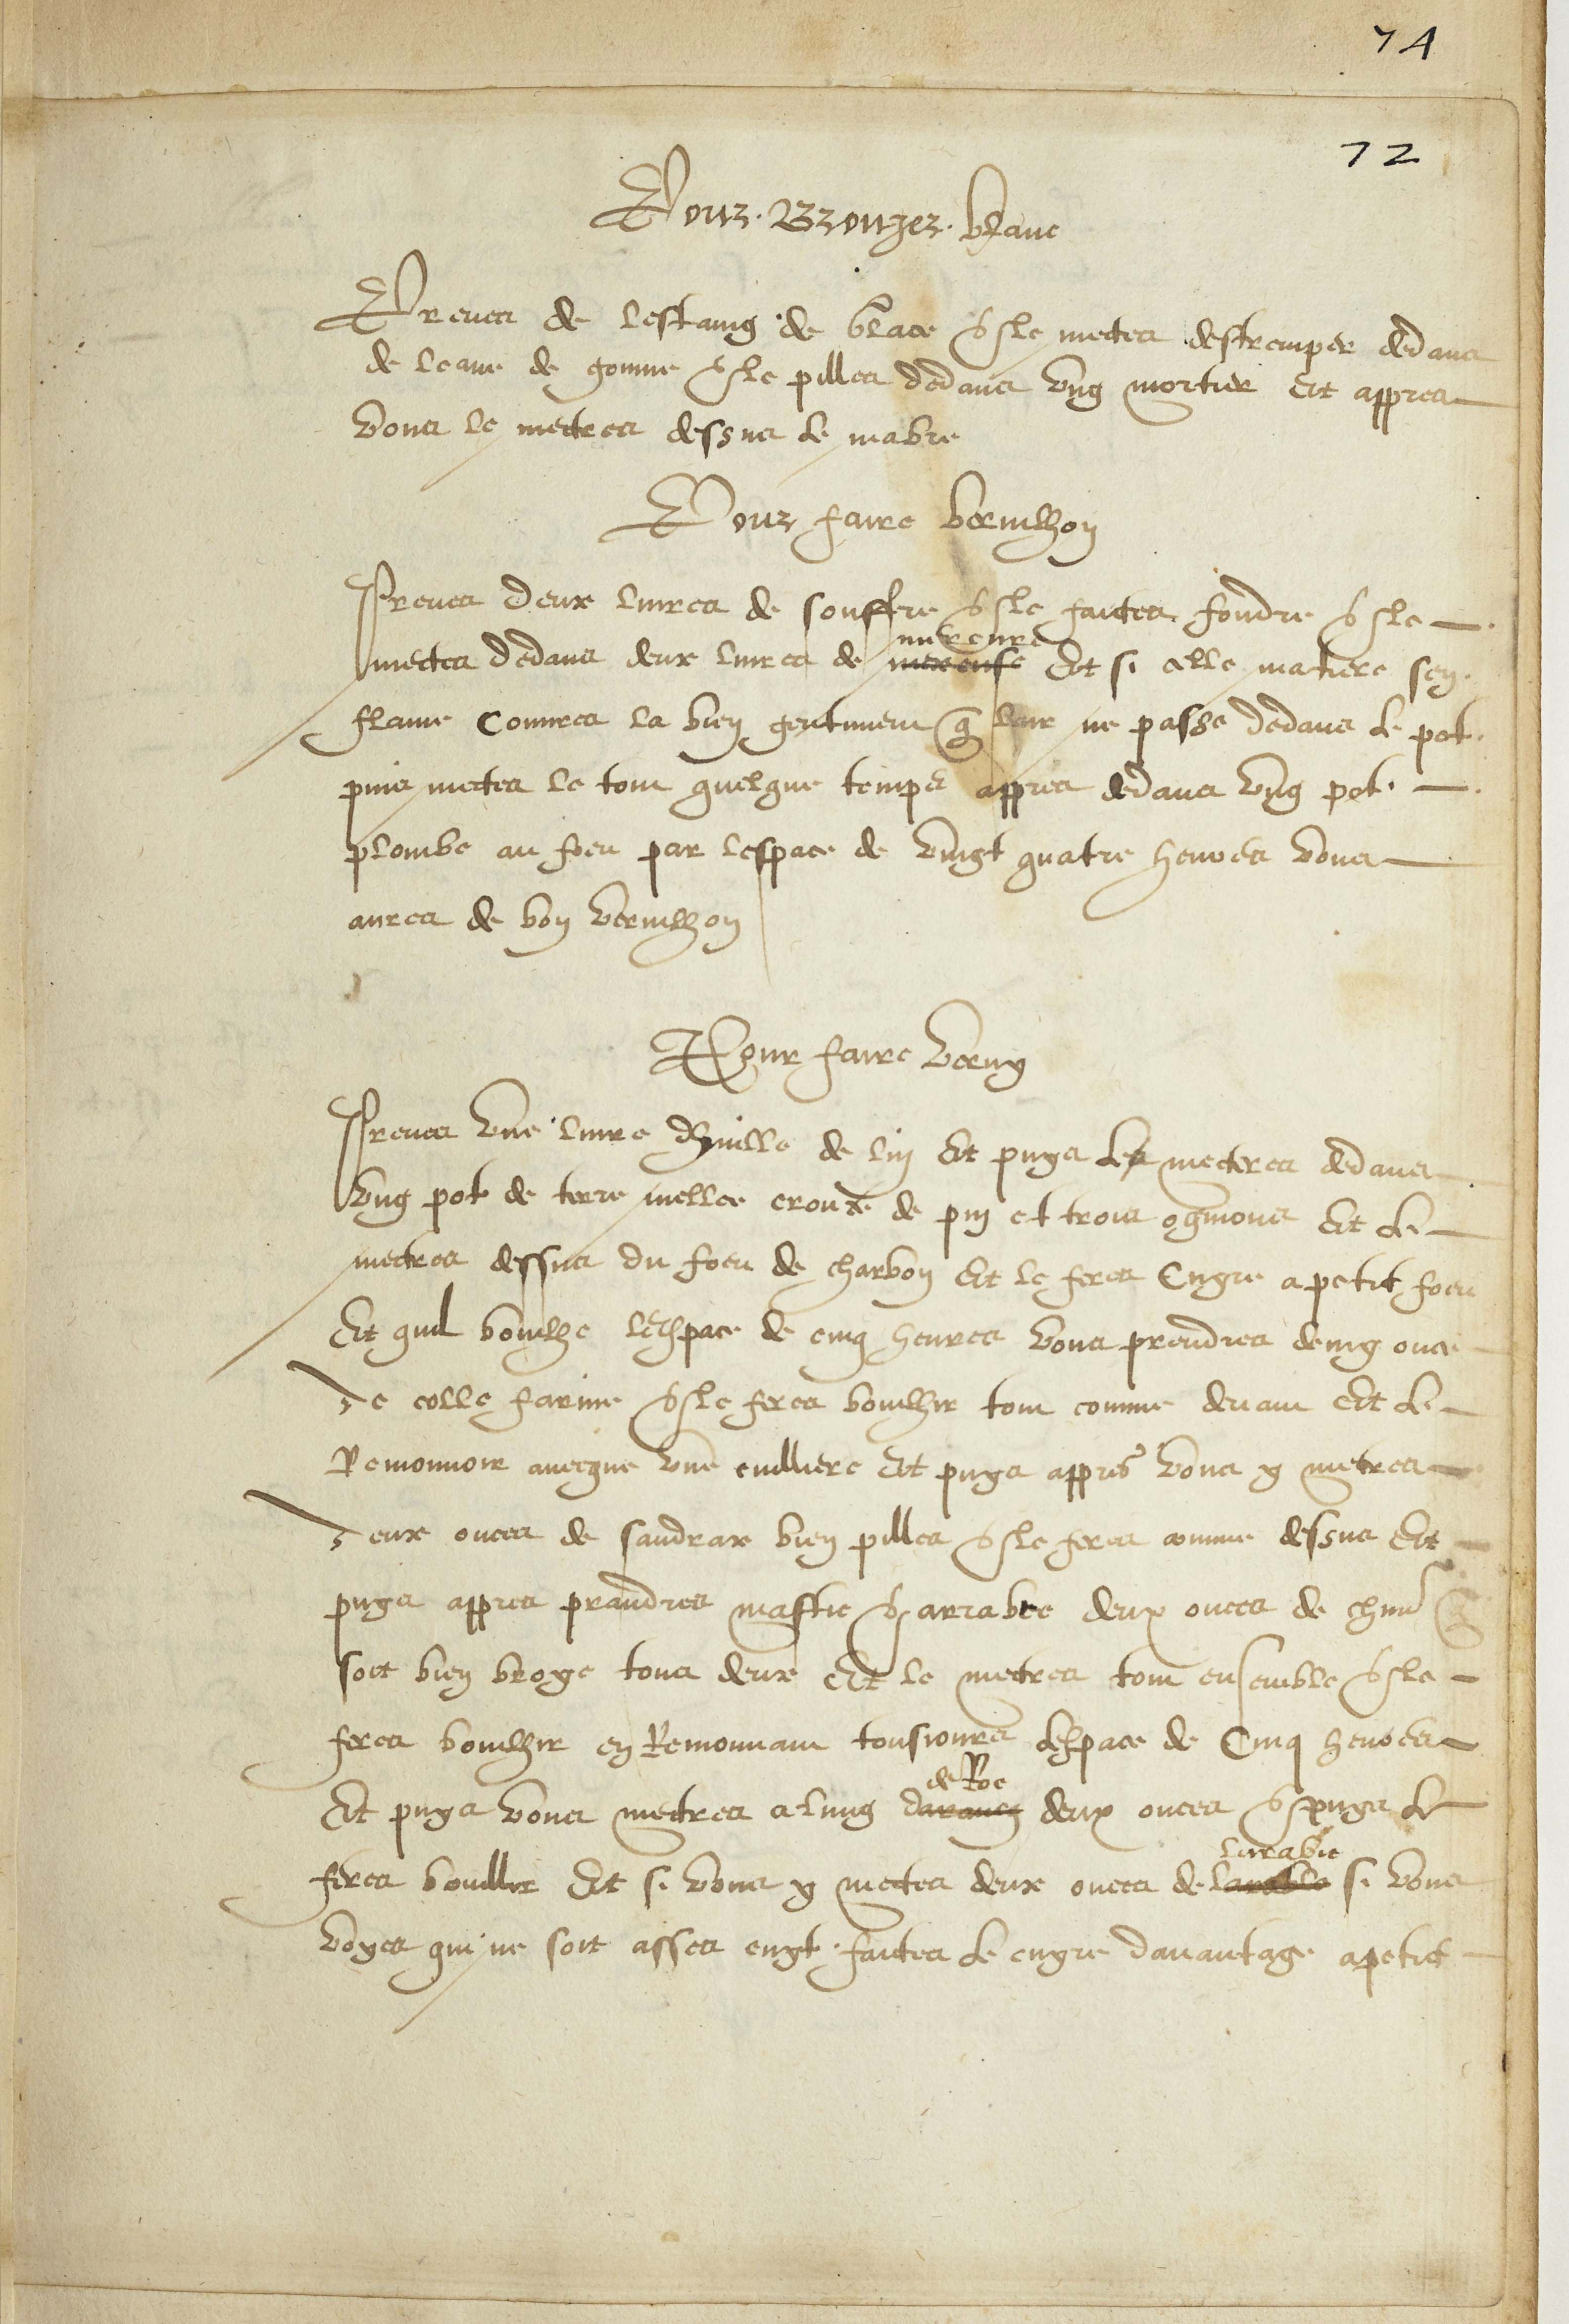 74
72
Pour. Bronzer. blanc
Prenes de lestaing de glace & le metes destremper dedans
de leaue de gomme & le pilles dedans ung mortier Et appres
vous le metres dessus le mabre
Pour faire vermilhon
Prenes deux livres de souffre & le faites fondre & le
mercure
metes dedans deux livres de Et si celle matiere sen
flame Couvres la bien gentimen q lair ne passe dedans le pot
puis metes le tout quelque temps appres dedans ung pot
plombe au foeu par lespace de vingt quatre heures vous
aures de bon vermilhon
Pour faire verny
Prenes une livre dhuille de lin Et puys le metres dedans
ung pot de terre mellee crouste de pin et trois ognions Et le
metres dessus du foeu de charbon Et le feres Cuyre a petit foeu
Et quil bouilhe lespace de cinq heures vous prendres demy once
de colle farine & le feres bouilhir tout comme devant Et le
Remouvoir avecque une cuilliere Et puys appres vous y metres
deux onces de sandrax bien pilles & le feres comme dessus Et
puys appres prandres mastic & arrabic deux onces de chun q
soit bien broye tous deux Et le metres tout ensemble & le
feres bouilhir en Remouvant tousiours lespace de Cinq heures
de Roc
Et puys vous metres alung deux onces & puys le
larrabic
feres bouillir Et si vous y metes deux onces de si vous
voyes qui ne soit asses cuyt faites le cuyre davantage apetit